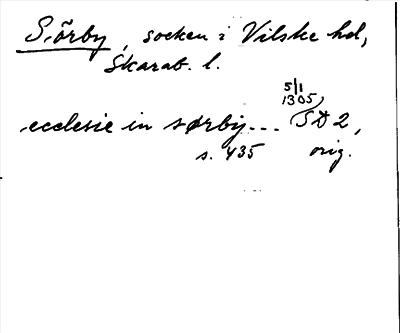 Sörby, socken i Vilske hd,
Skarab. l.
5/1
1305,
ecclesie in sørby... SD 2,
s. 435 orig.